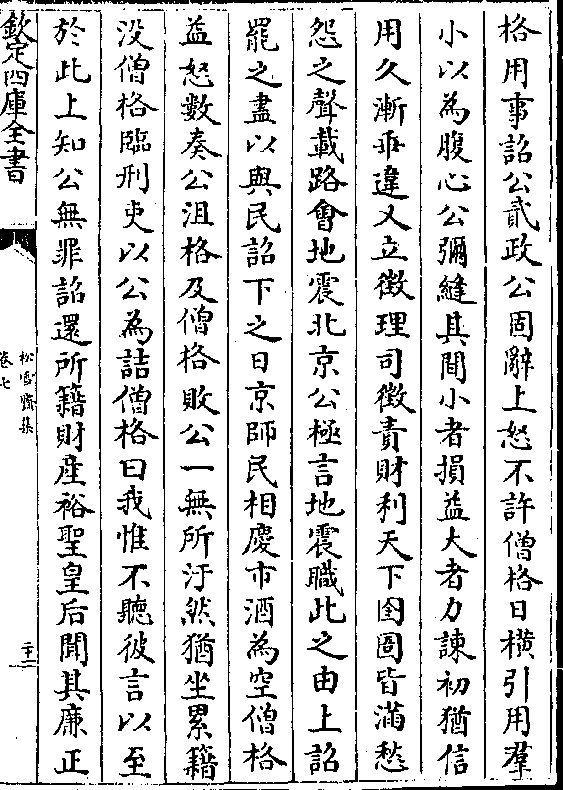 格用事詔公貳政公固辭上怒不許僧格日橫引用羣
小以為腹心公彌縫其間小者損益大者力諫初猶信
用久漸乖違又立徴理司徴責財利天下囹圄皆滿愁
怨之聲載路會地震北京公極言地震職此之由上詔
罷之盡以與民詔下之日京師民相慶市酒為空僧格
益怒數奏公沮格及僧格敗公一無所汙然猶坐累籍
没僧格臨刑吏以公為詰僧格曰我惟不聽彼言以至
於此上知公無罪詔還所籍財產裕聖皇后聞其廉正
欽定四庫全書
松雪齋集
卷七
二十二